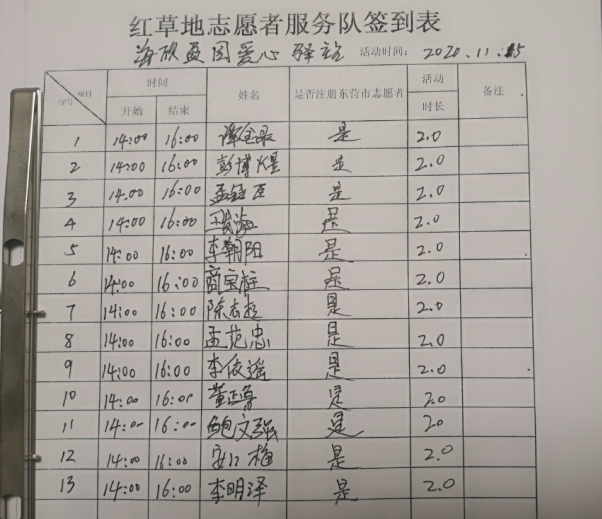 红草地志愿者服务队签到表
海欣 园爱心驿站 活动时间: 2020.11.15
序号 项目 时间 开始 结束 姓名 是否注册东营市志愿者 活动时长 备注
1 14:00 16:00 是 2.0
2 14:00 16:00 彭博煜 是 2.0
3 14:00 16:00 是 2.0
4 14:00 16:00 是 2.0
5 14:00 16:00 李朝阳 是 2.0
6 14:00 16:00 商宝柱 是 2.0
7 14:00 16:00 陈志 是 2.0
8 14:00 16:00 孟范忠 是 2.0
9 14:00 16:00 李依遥 是 2.0
10 14:00 16:00 董 是 2.0
11 14:00 16:00 鲍文强 是 20
12 14:00 16:00 是 2.0
13 14:00 16:00 李明泽 是 2.0